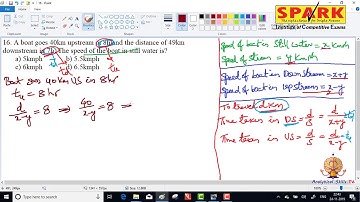 SPARK
Institute of Competitive Exams
16. A boat goes 40km upstream in 8h and the distance of 49km
downstream in 7h. The speed of the boat in still water is?
a) 5kmph b) 5.5kmph
c) 6kmph d) 6.5kmph
Boat goes 40 km US in 8 hr
tu = 8 hr
d/x-y = 8 ⇒ 40/x-y = 8 ⇒
Speed of boat in still water = x kmph
Speed of stream = y kmph
Speed of boat in Downstream = x+y
Speed of boat in Upstream = x-y
To travel d km
Time taken in DS = d/s = d/x+y
Time taken in US = d/s = d/x-y
Analytical Skills